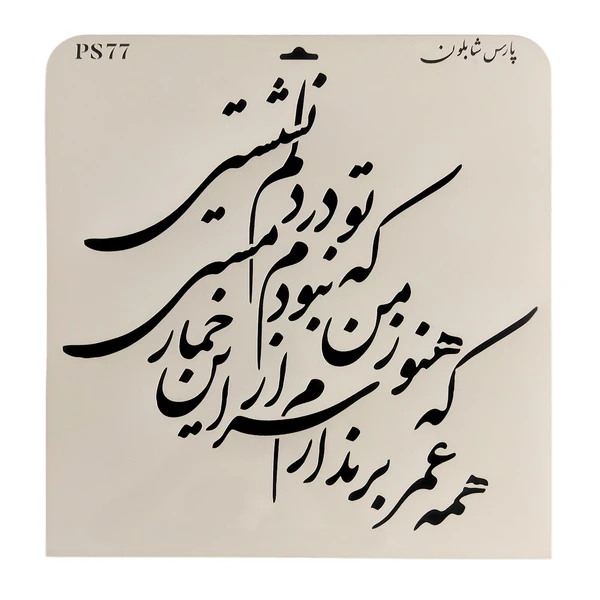 PS77
پارس شابلون
همه عمر برندارم سر از این خمار مستی
که هنوز من نبودم که تو در دلم نشستی